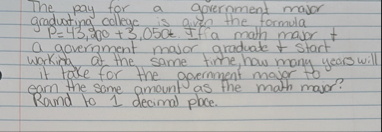 The pay for a government major
graduating college is given the formula
P=43,900 + 3,050t. If a math major +
a government major graduate + start
working at the same time, how many years will
it take for the government major to
earn the same amount as the math major?
Round to 1 decimal place.